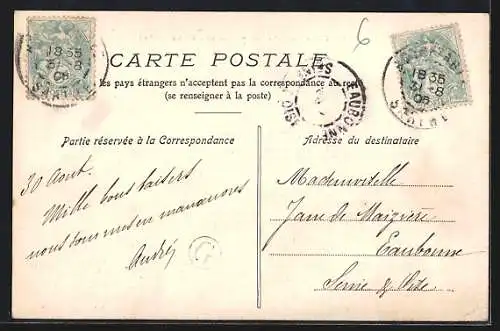 6
1855
31-8
06
CARTE POSTALE
les pays étrangers n'acceptent pas la correspondance au recto
(se renseigner à la poste)
EAUBONNE
1855
31-8
06
SARTHE
Partie réservée à la Correspondance
Adresse du destinataire
30 Aout.
Mille bons baisers
nous sommes en manœuvres
André
Mademoiselle
Jane de Maizière
Eaubonne
Seine & Oise